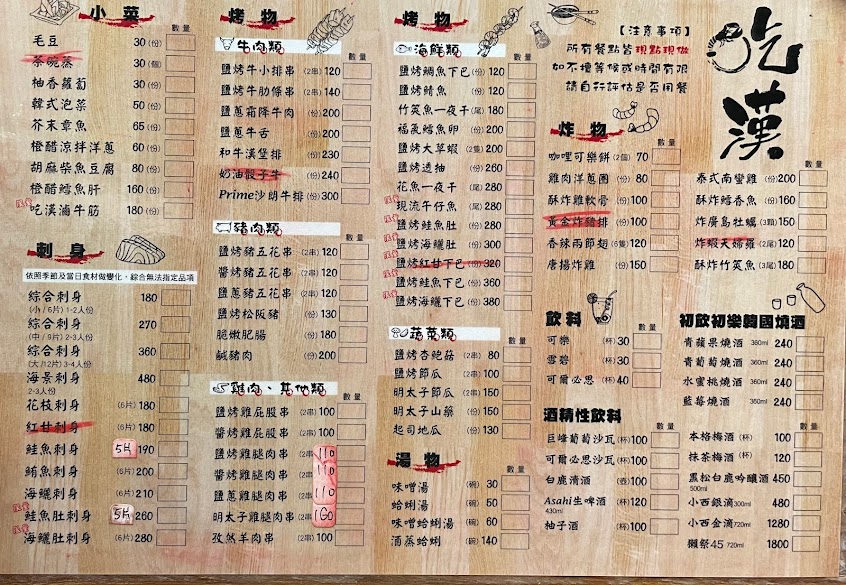 吃漢
【注意事項】
所有餐點皆現點現做
如不擅等候或時間有限
請自行評估是否用餐
小菜
數量
毛豆 30 (份)
茶碗蒸 30 (個)
柚香蘿蔔 30 (份)
韓式泡菜 50 (份)
芥末章魚 65 (份)
橙醋涼拌洋蔥 60 (份)
胡麻柴魚豆腐 80 (份)
橙醋鱈魚肝 160 (份)
吃漢滷牛筋 180 (份)
刺身
依照季節及當日食材做變化，綜合無法指定品項
綜合刺身 180
(小/6片) 1-2人份
綜合刺身 270
(中/9片) 2-3人份
綜合刺身 360
(大/12片) 3-4人份
海景刺身 480
2-3人份
花枝刺身 (6片) 180
紅甘刺身 (6片) 180
鮭魚刺身 5片 190
鮪魚刺身 (6片) 200
海鱺刺身 (6片) 210
鮭魚肚刺身 5片 260
海鱺肚刺身 (6片) 280
烤物
牛肉類
數量
鹽烤牛小排串 (2串) 120
鹽烤牛肋條串 (2串) 140
鹽蔥霜降牛肉 (份) 200
鹽蔥牛舌 (份) 200
和牛漢堡排 (份) 230
奶油骰子牛 (份) 240
Prime沙朗牛排 (份) 300
豬肉類
數量
鹽烤豬五花串 (2串) 120
醬烤豬五花串 (2串) 120
鹽蔥豬五花串 (2串) 120
鹽烤松阪豬 (份) 130
脆嫩肥腸 (份) 180
鹹豬肉 (份) 200
雞肉、其他類
數量
鹽烤雞屁股串 (2串) 100
醬烤雞屁股串 (2串) 100
鹽烤雞腿肉串 (2串) 110
醬烤雞腿肉串 (2串) 110
鹽蔥雞腿肉串 (2串) 110
明太子雞腿肉串 (2串) 160
孜然羊肉串 (2串) 100
烤物
海鮮類
數量
鹽烤鯛魚下巴 (份) 120
鹽烤鯖魚 (份) 120
竹筴魚一夜干 (尾) 180
福氣鱈魚卵 (份) 200
鹽烤大草蝦 (2隻) 200
鹽烤透抽 (份) 260
花魚一夜干 (尾) 280
現流午仔魚 (尾) 280
鹽烤鮭魚肚 (份) 280
鹽烤海鱺肚 (份) 300
鹽烤紅甘下巴 (份) 320
鹽烤鮭魚下巴 (份) 360
鹽烤海鱺下巴 (份) 380
蔬菜類
數量
鹽烤杏鮑菇 (2串) 80
鹽烤節瓜 (2串) 100
明太子節瓜 (2串) 150
明太子山藥 (份) 150
起司地瓜 (份) 130
湯物
數量
味噌湯 (碗) 30
蛤蜊湯 (碗) 50
味噌蛤蜊湯 (碗) 60
酒蒸蛤蜊 (碗) 140
炸物
數量
咖哩可樂餅 (2個) 70
雞肉洋蔥圈 (份) 80
酥炸雞軟骨 (份) 100
黃金炸豬排 (份) 100
香辣兩節翅 (6隻) 120
唐揚炸雞 (份) 150
數量
泰式南蠻雞 (份) 200
酥炸鱈香魚 (份) 160
炸廣島牡蠣 (3顆) 150
炸蝦天婦羅 (2尾) 120
酥炸竹筴魚 (3尾) 180
飲料
數量
可樂 (杯) 30
雪碧 (杯) 30
可爾必思 (杯) 40
初飲初樂韓國燒酒
數量
青蘋果燒酒 360ml 240
青葡萄燒酒 360ml 240
水蜜桃燒酒 360ml 240
藍莓燒酒 360ml 240
酒精性飲料
數量
巨峰葡萄沙瓦 (杯) 100
可爾必思沙瓦 (杯) 100
白鹿清酒 (壺) 100
Asahi生啤酒 (杯) 120
430ml
柚子酒 (杯) 100
數量
本格梅酒 (杯) 100
抹茶梅酒 (杯) 120
黑松白鹿吟釀酒 450
500ml
小西銀滴 300ml 480
小西金滴 720ml 1280
獺祭45 720ml 1800